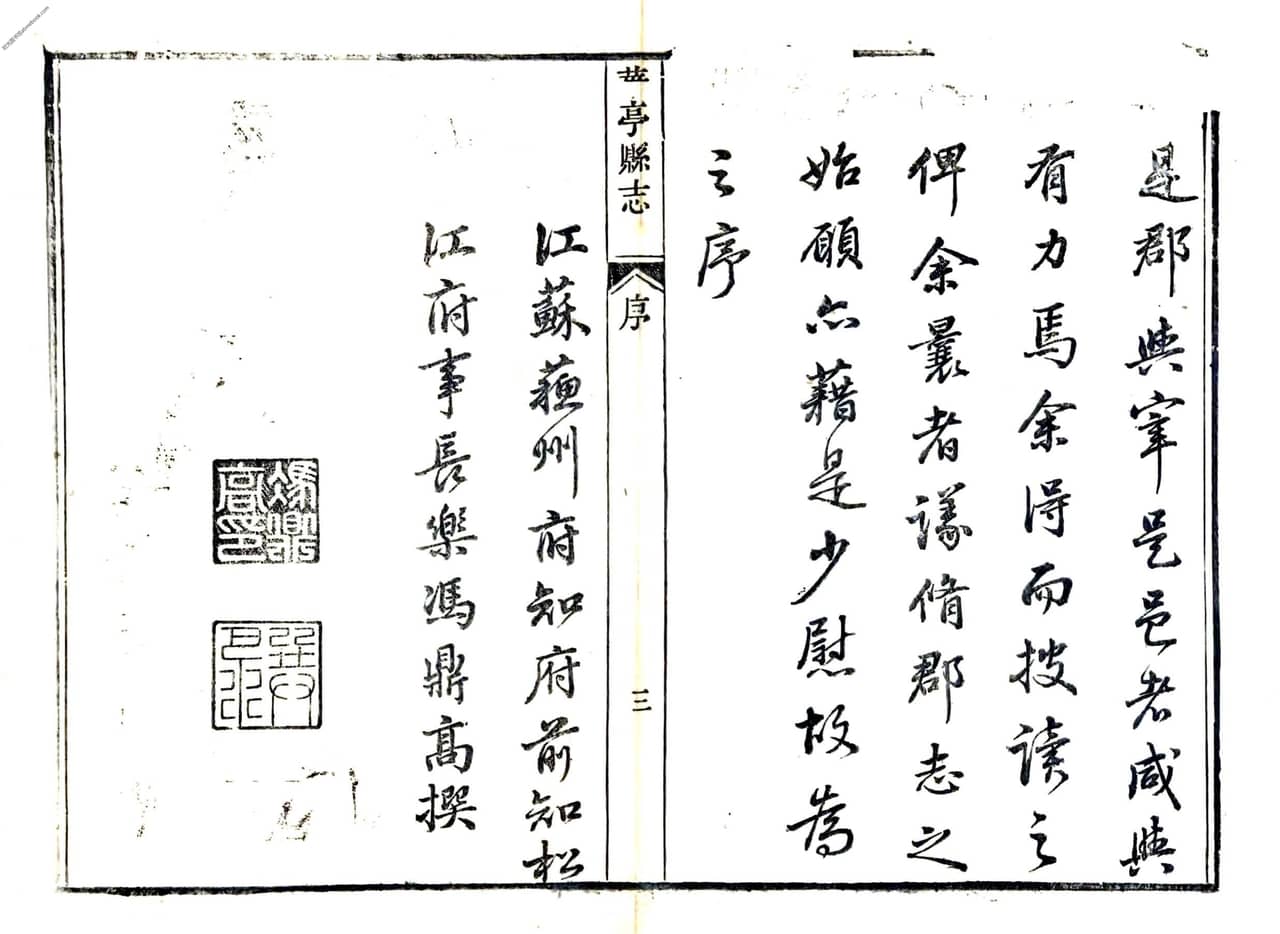 是郡與宰是邑者咸與
有力焉余得而披讀之
俾余曩者議脩郡志之
始願亦藉是少慰故為
之序
華亭縣志
序
三
江蘇蘇州府知府前知松
江府事長樂馮鼎高撰